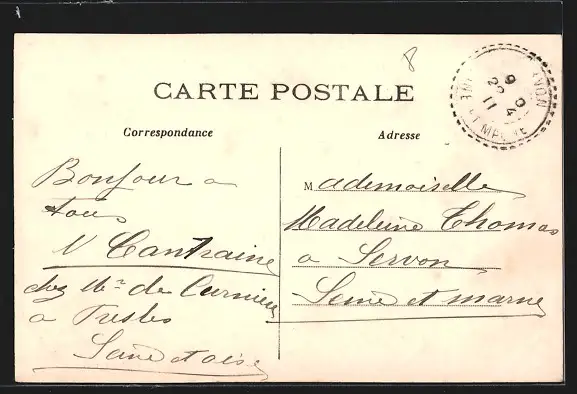 8
CARTE POSTALE
Correspondance
Adresse
Bonjour a
tous
V Cantraine
chez Mr de
a
Seine et oise
Mademoiselle
Madeleine Thomas
a Servon
Seine et marne